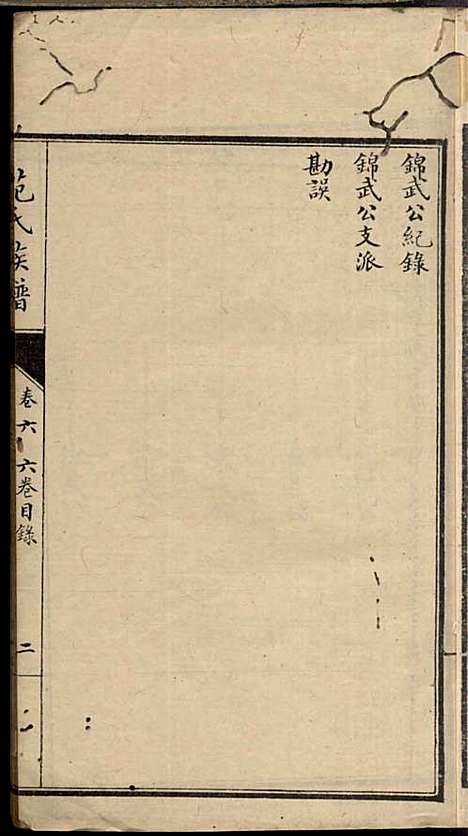 錦武公紀錄
錦武公支派
勘誤
范氏族譜
卷六
六卷目錄
二